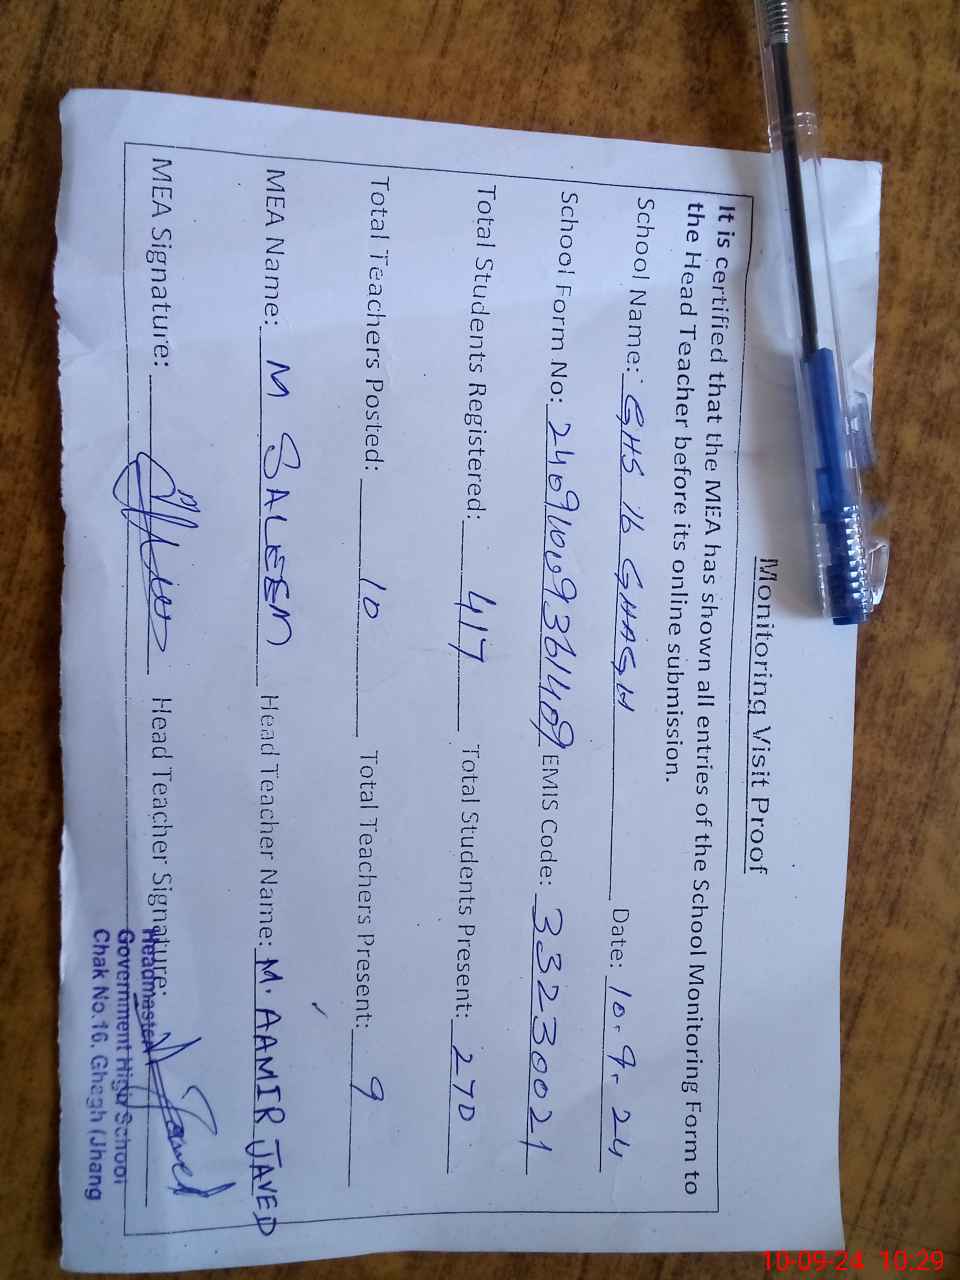 Monitoring Visit Proof
It is certified that the MEA has shown all entries of the School Monitoring Form to
the Head Teacher before its online submission.
School Name: GHS 16 GHAGH Date: 10.9.24
School Form No: EMIS Code: 33230021
Total Students Registered: 417 Total Students Present: 270
Total Teachers Posted: 10 Total Teachers Present: 9
MEA Name: M SALEEM Head Teacher Name: M. AAMIR JAVED
MEA Signature: Head Teacher Signature:
Headmaster
Government High School
Chak No.16, Ghagh (Jhang
10-09-24 10:29